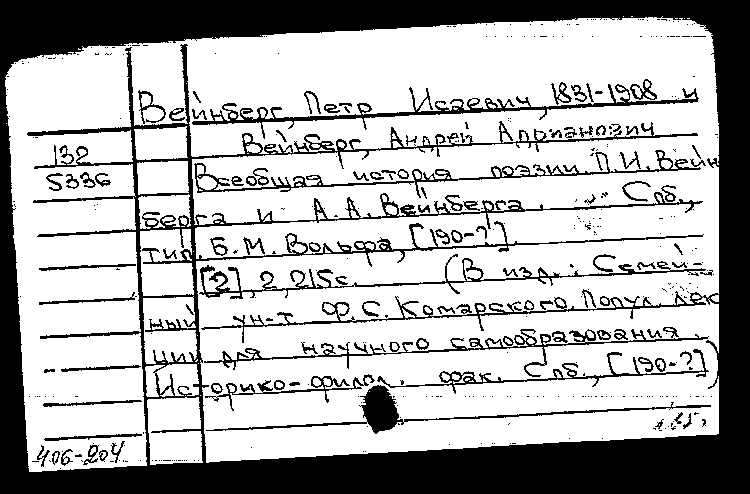 Вейнберг, Петр Исаевич, 1831-1908 и
Вейнберг, Андрей Адрианович
132
S336
Всеобщая история поэзии П.И. Вейн
берга и А.А. Вейнберга. Спб.,
тип. Б.М. Вольфа, [190-?]
[2], 2, 215с. (В изд.: Семей-
ный ун-т Ф.С. Комарского. Попул. лек
ции для научного самообразования.
Историко-филол. фак. Спб., [190-?])
406-204